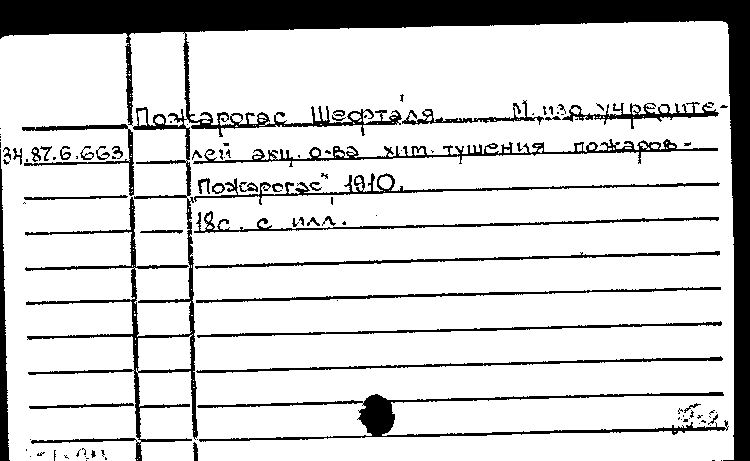 Пожарогас Шефталя. М. изд. учредите-
34.87.6.663. лей акц. о-ва хим. тушения пожаров-
"Пожарогас" 1910.
18с. с илл.